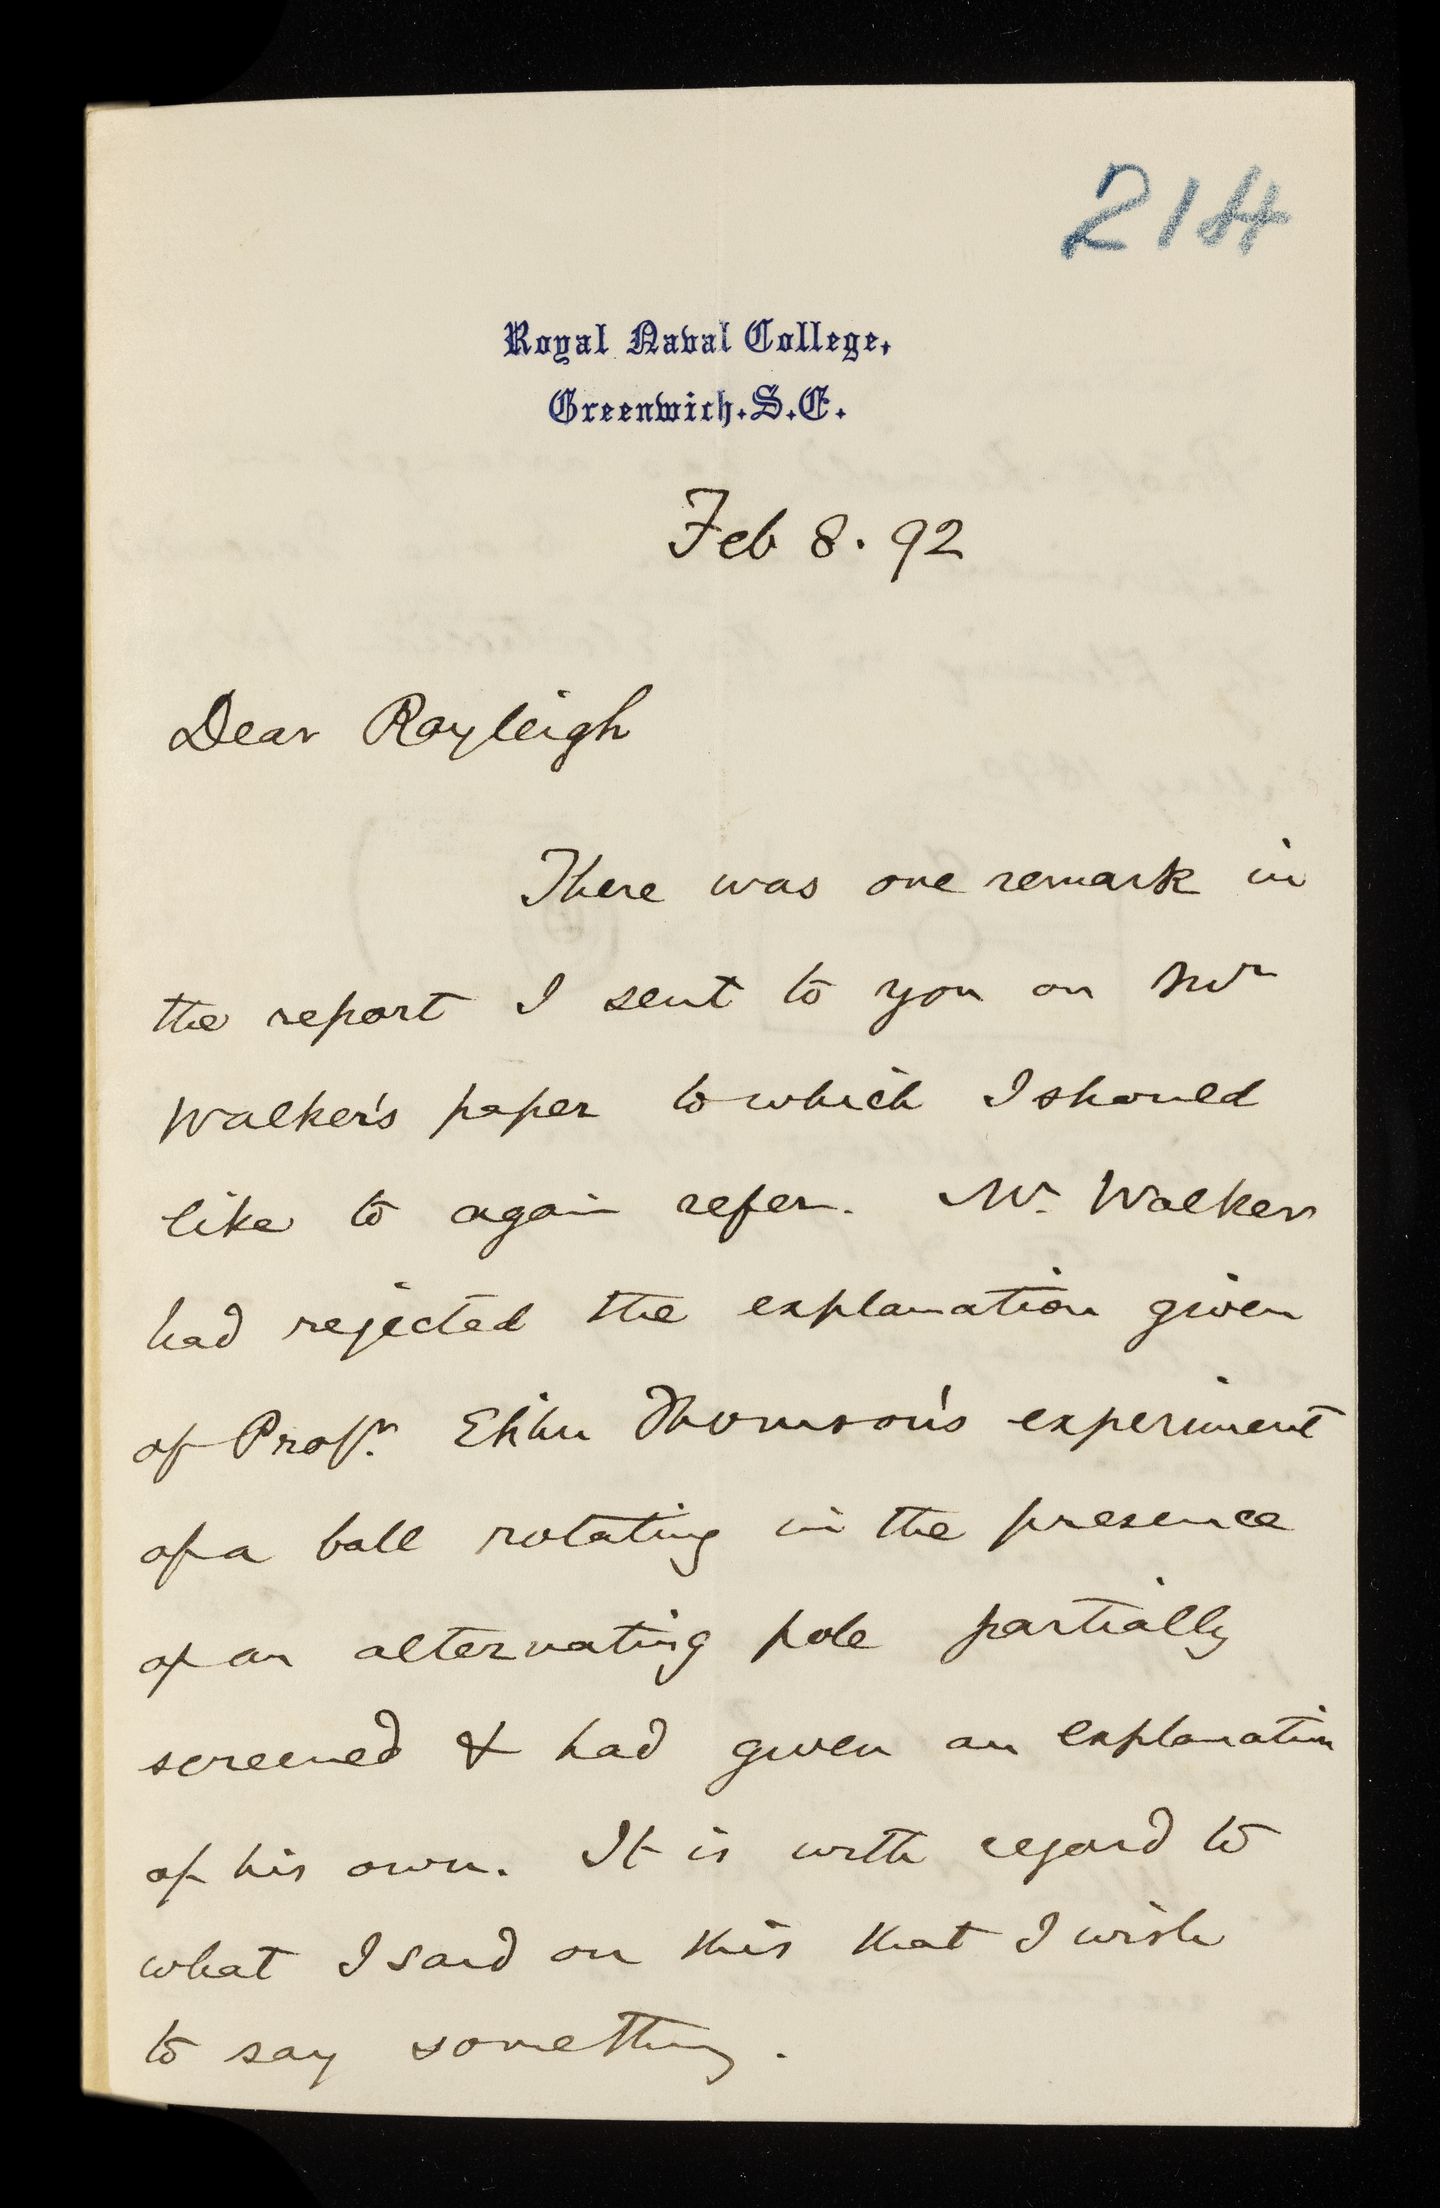 214
Royal Naval College,
Greenwich. S.E.
Feb 8. 92
Dear Rayleigh
There was one remark in
the report I sent to you on Mr
Walker's paper to which I should
like to again refer. Mr. Walker
had rejected the explanation given
of Profr. Elihu Thomson's experiment
of a ball rotating in the presence
of an alternating pole partially
screened & had given an explanation
of his own. It is with regard to
what I said on this that I wish
to say something.